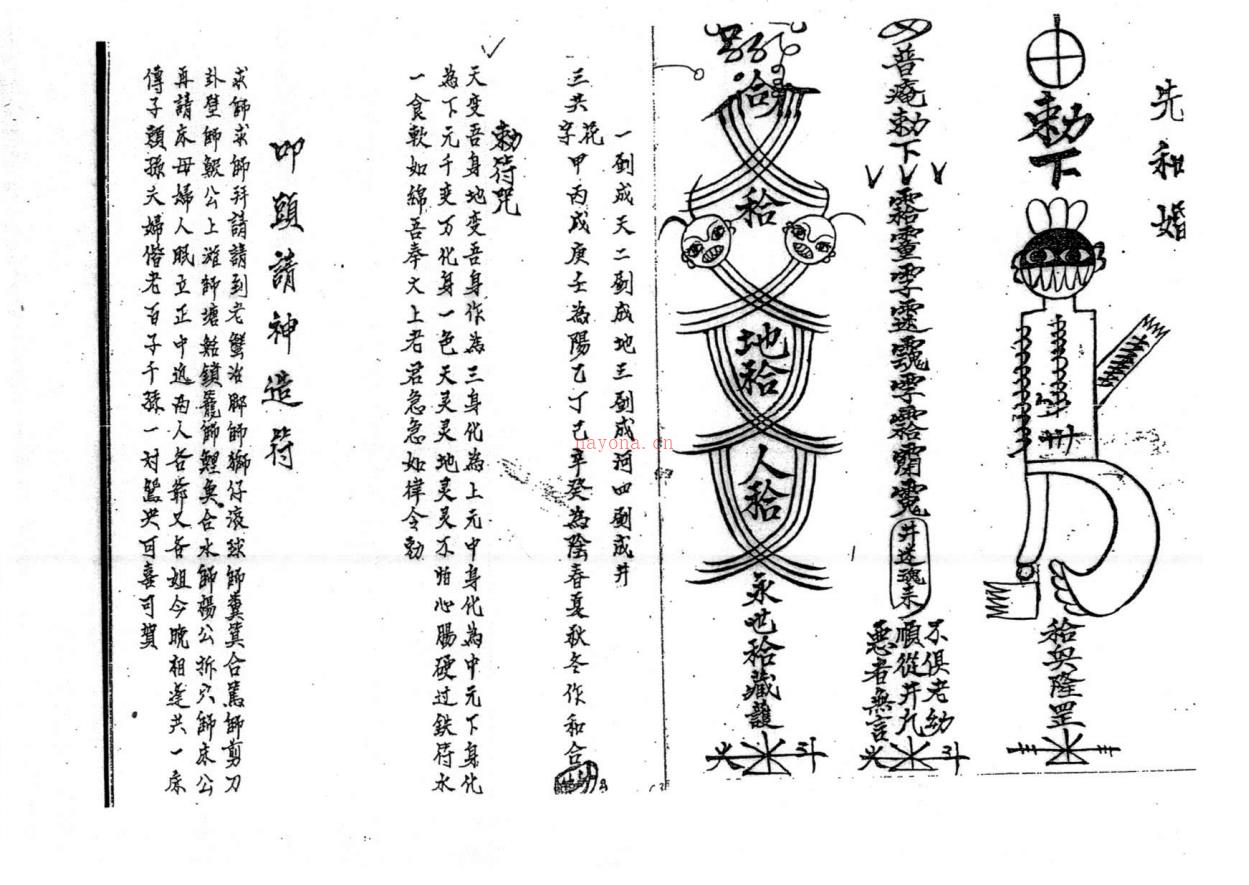 先和婚
勅下
和興隆罡
普庵勅下
井迷魂來
不俱老幼
順從井九
悪者無言
斗
合
和
地和
人和
永世和藏護
斗
一劃成天二劃成地三劃成河四劃成井
三共花字甲丙戊庚壬為陽乙丁己辛癸為陰春夏秋冬作和合
勅符咒
天变吾身地变吾身作為三身化為上元中身化為中元下身化
為下元千变万化身一色天灵灵地灵灵不怕心腸硬过鉄符水
一食軟如綿吾奉太上老君急急如律令勅
叩頭請神造符
求師求師拜請請到老蟹治腳師獅仔滚球師糞箕合篤師剪刀
卦壁師鮫公上滩師塘鮎鎖籠師鯉魚合水師楊公拆穴師床公
再請床母婦人眠立正中追為人各爺又各姐今晚相逢共一床
傳子頭孫夫婦偕老百子千孫一对鴛央可喜可賀
nayona.cn